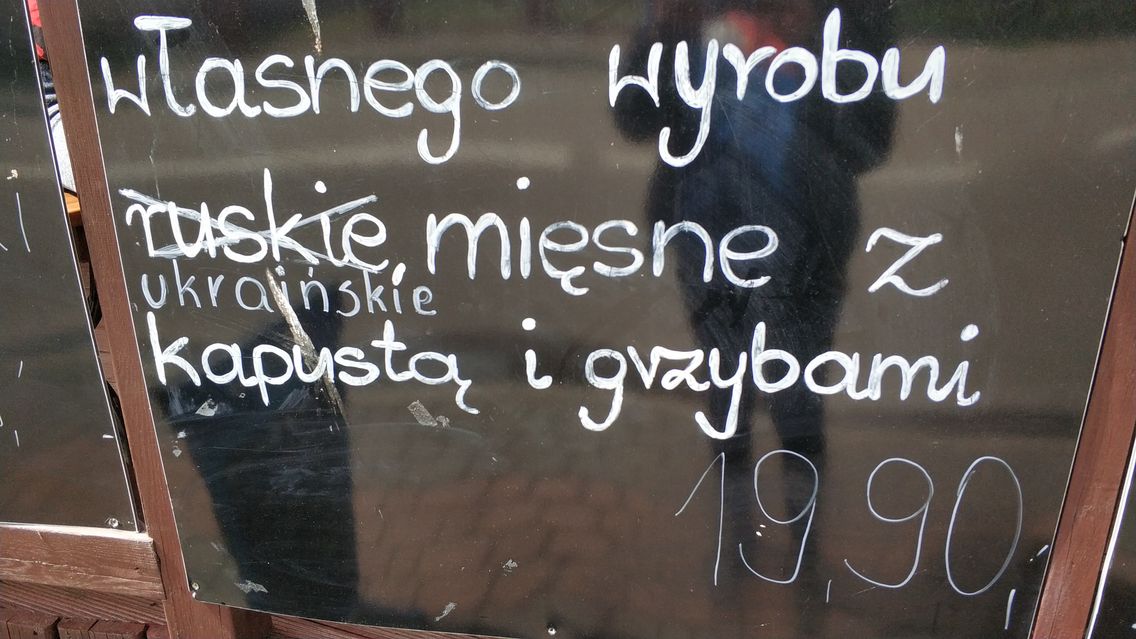 własnego wyrobu
ruskie, mięsne z
ukraińskie
kapustą i grzybami
19,90,-